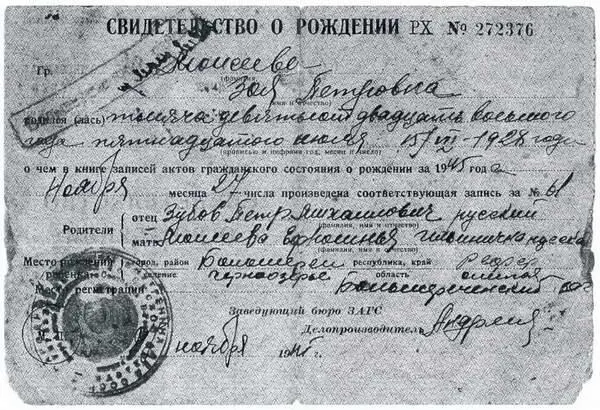 СВИДЕТЕЛЬСТВО О РОЖДЕНИИ РХ № 272376
Гр. Моисеева
(фамилия,
Зоя Петровна
имя и отчество)
родился (лась) тысяча девятьсот двадцать восьмого
года пятнадцатого июля 15/VII-1928 года
(прописью и цифрами год, месяц и число)
о чем в книге записей актов гражданского состояния о рождении за 1945 год
Ноября месяца 27 числа произведена соответствующая запись за № 61
Родители
отец Зубов Петр Михайлович русский
(фамилия, имя и отчество)
мать Моисеева Ефросинья русская
(фамилия, имя и отчество)
Место рождения ребенка:
город, район
республика, край
селение Черноозерье область
Место регистрации Большереченский
Заведующий бюро ЗАГС
Делопроизводитель
ноября 1945 г.